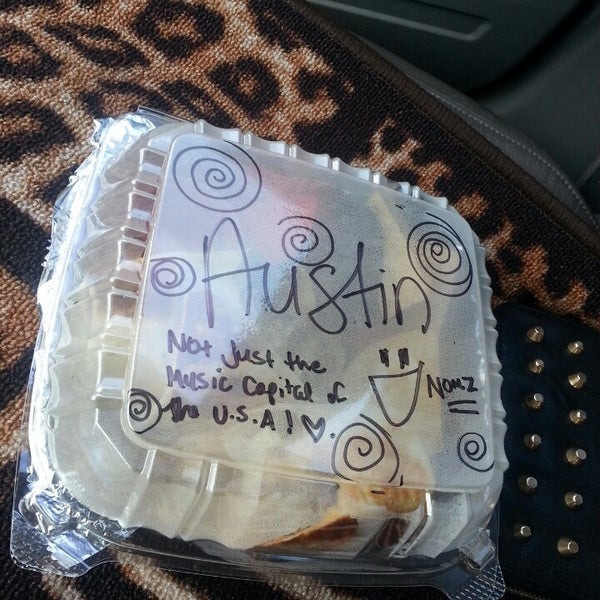 Austin
Not Just the
Music Capital of
the U.S.A! ♡.
NOMZ